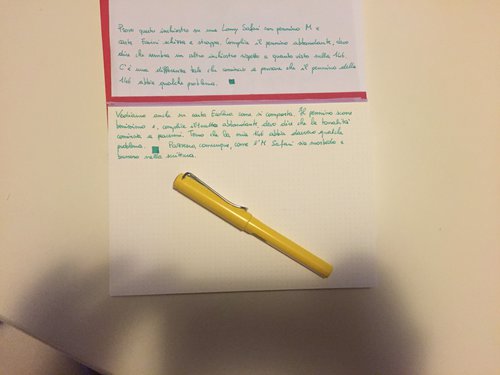 Provo questo inchiostro su una Lamy Safari con pennino M e
carta Fanini schizza e strappa. Complice il pennino abbondante, devo
dire che sembra un altro inchiostro rispetto a quanto visto sulla 146.
C'è una differenza tale che comincio a pensare che il pennino della
146 abbia qualche problema.
Vediamo anche su carta come si comporta. Il pennino scorre
benissimo e, complice il tratto abbondante, devo dire che la tonalità
comincia a piacermi. Temo che la mia 146 abbia davvero qualche
problema. Pazzesco, comunque, come l'M Safari sia morbido e
burroso nella scrittura.